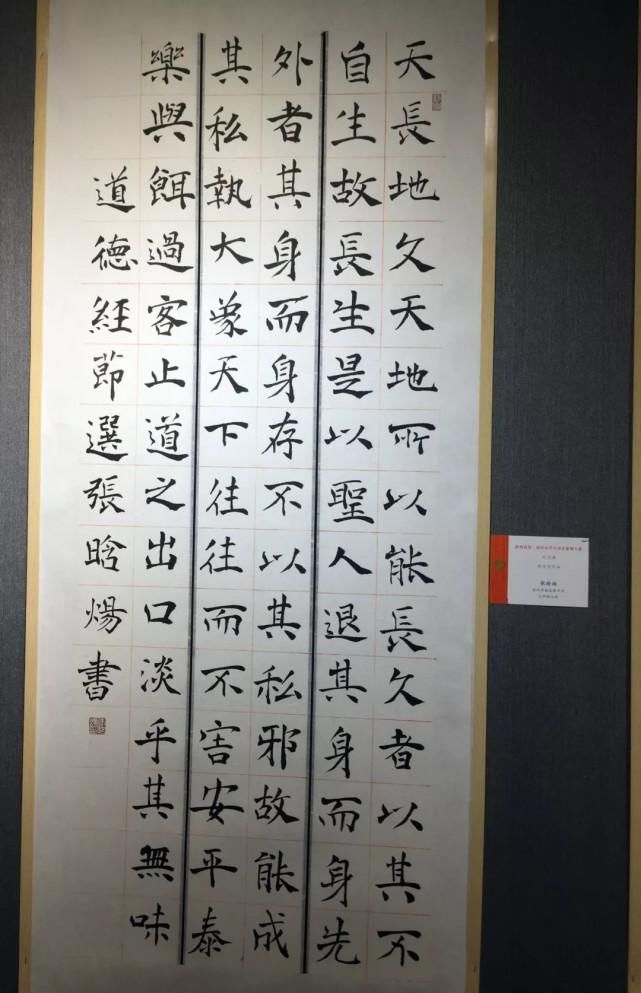 天長地久天地所以能長久者以其不
自生故長生是以聖人退其身而身先
外者其身而身存不以其私邪故能成
其私執大象天下往往而不害安平泰
樂與餌過客止道之出口淡乎其無味
道德經節選張晗煬書